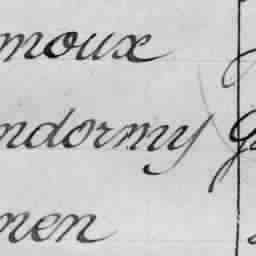 moux
ndormy
men